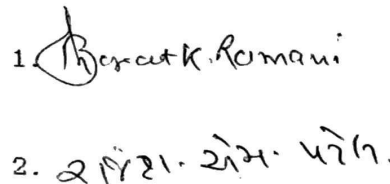 1. Bharat K. Ramani
2. રાજેશ. એમ. પટેલ.